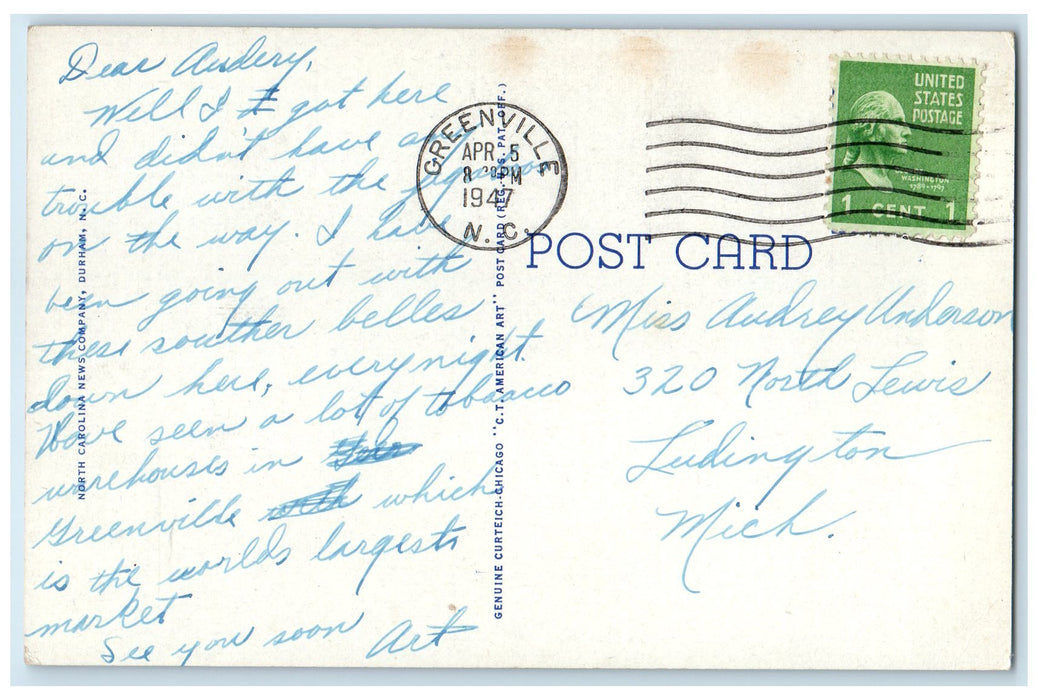 Dear Audery,
Well I got here
and didn't have any
trouble with the
on the way. I have
been going out with
these souther belles
down here, everynight.
Have seen a lot of tobaacco
warehouses in
Greenville which
is the worlds largests
market
See you soon Art
NORTH CAROLINA NEWS COMPANY, DURHAM, N. C.
GENUINE CURTEICH-CHICAGO "C.T. AMERICAN ART" POST CARD (REG. U.S. PAT. OFF.)
GREENVILLE
APR 5
8 PM
1947
N. C.
UNITED
STATES
POSTAGE
WASHINGTON
1789-1797
1 CENT 1
POST CARD
Miss Audrey Anderson
320 North Lewis
Ludington
Mich.